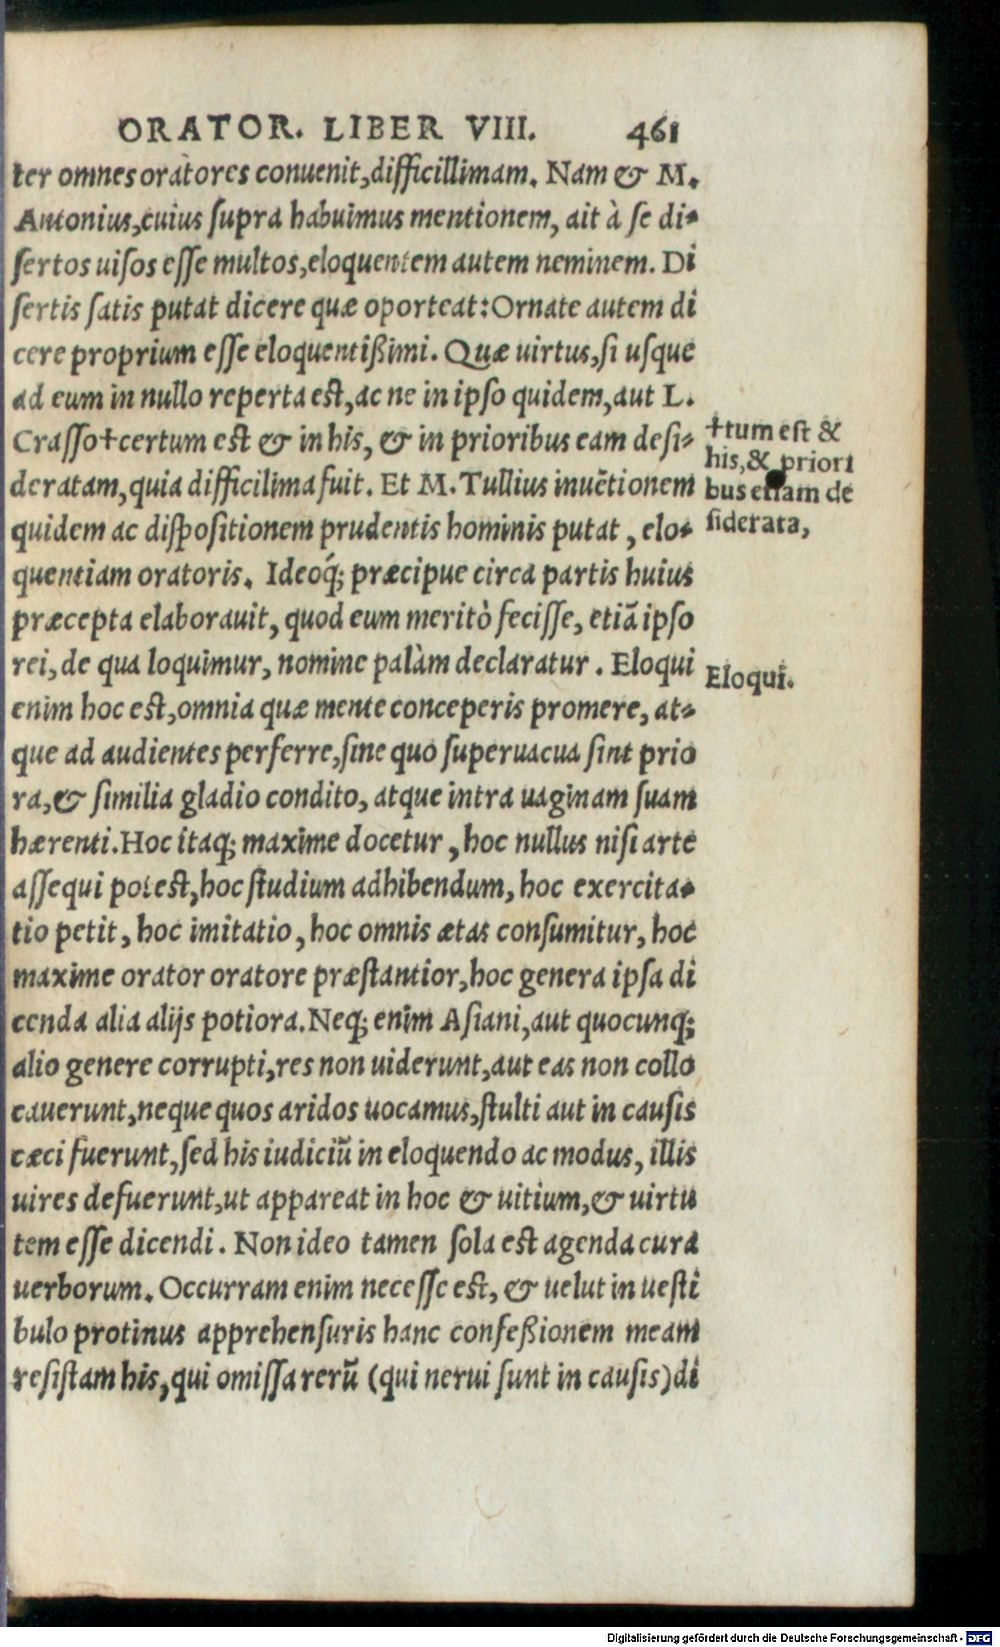 ORATOR. LIBER VIII. 461
ter omnes oratores conuenit, difficillimam. Nam & M.
Antonius, cuius supra habuimus mentionem, ait à se di-
sertos uisos esse multos, eloquentem autem neminem. Di
sertis satis putat dicere quæ oporteat: Ornate autem di
cere proprium esse eloquentißimi. Quæ uirtus, si usque
ad eum in nullo reperta est, ac ne in ipso quidem, aut L.
Crasso † certum est & in his, & in prioribus eam desi-
deratam, quia difficilima fuit. Et M. Tullius inuẽtionem
quidem ac dispositionem prudentis hominis putat, elo-
quentiam oratoris. Ideoq́; præcipue circa partis huius
præcepta elaborauit, quod eum meritò fecisse, etiã ipso
rei, de qua loquimur, nomine palàm declaratur. Eloqui
enim hoc est, omnia quæ mente conceperis promere, at-
que ad audientes perferre, sine quo superuacua sint prio
ra, & similia gladio condito, atque intra uaginam suam
hærenti. Hoc itaq; maxime docetur, hoc nullus nisi arte
assequi potest, hoc studium adhibendum, hoc exercita-
tio petit, hoc imitatio, hoc omnis ætas consumitur, hoc
maxime orator oratore præstantior, hoc genera ipsa di
cenda alia alijs potiora. Neq; enim Asiani, aut quocunq;
alio genere corrupti, res non uiderunt, aut eas non collo
cauerunt, neque quos aridos uocamus, stulti aut in causis
cæci fuerunt, sed his iudiciũ in eloquendo ac modus, illis
uires defuerunt, ut appareat in hoc & uitium, & uirtu
tem esse dicendi. Non ideo tamen sola est agenda cura
uerborum. Occurram enim necesse est, & uelut in uesti
bulo protinus apprehensuris hanc confeßionem meam
resistam his, qui omissa rerũ (qui nerui sunt in causis) di
† tum est &
his, & priori
bus etiam de
siderata,
Eloqui.
Digitalisierung gefördert durch die Deutsche Forschungsgemeinschaft - DFG